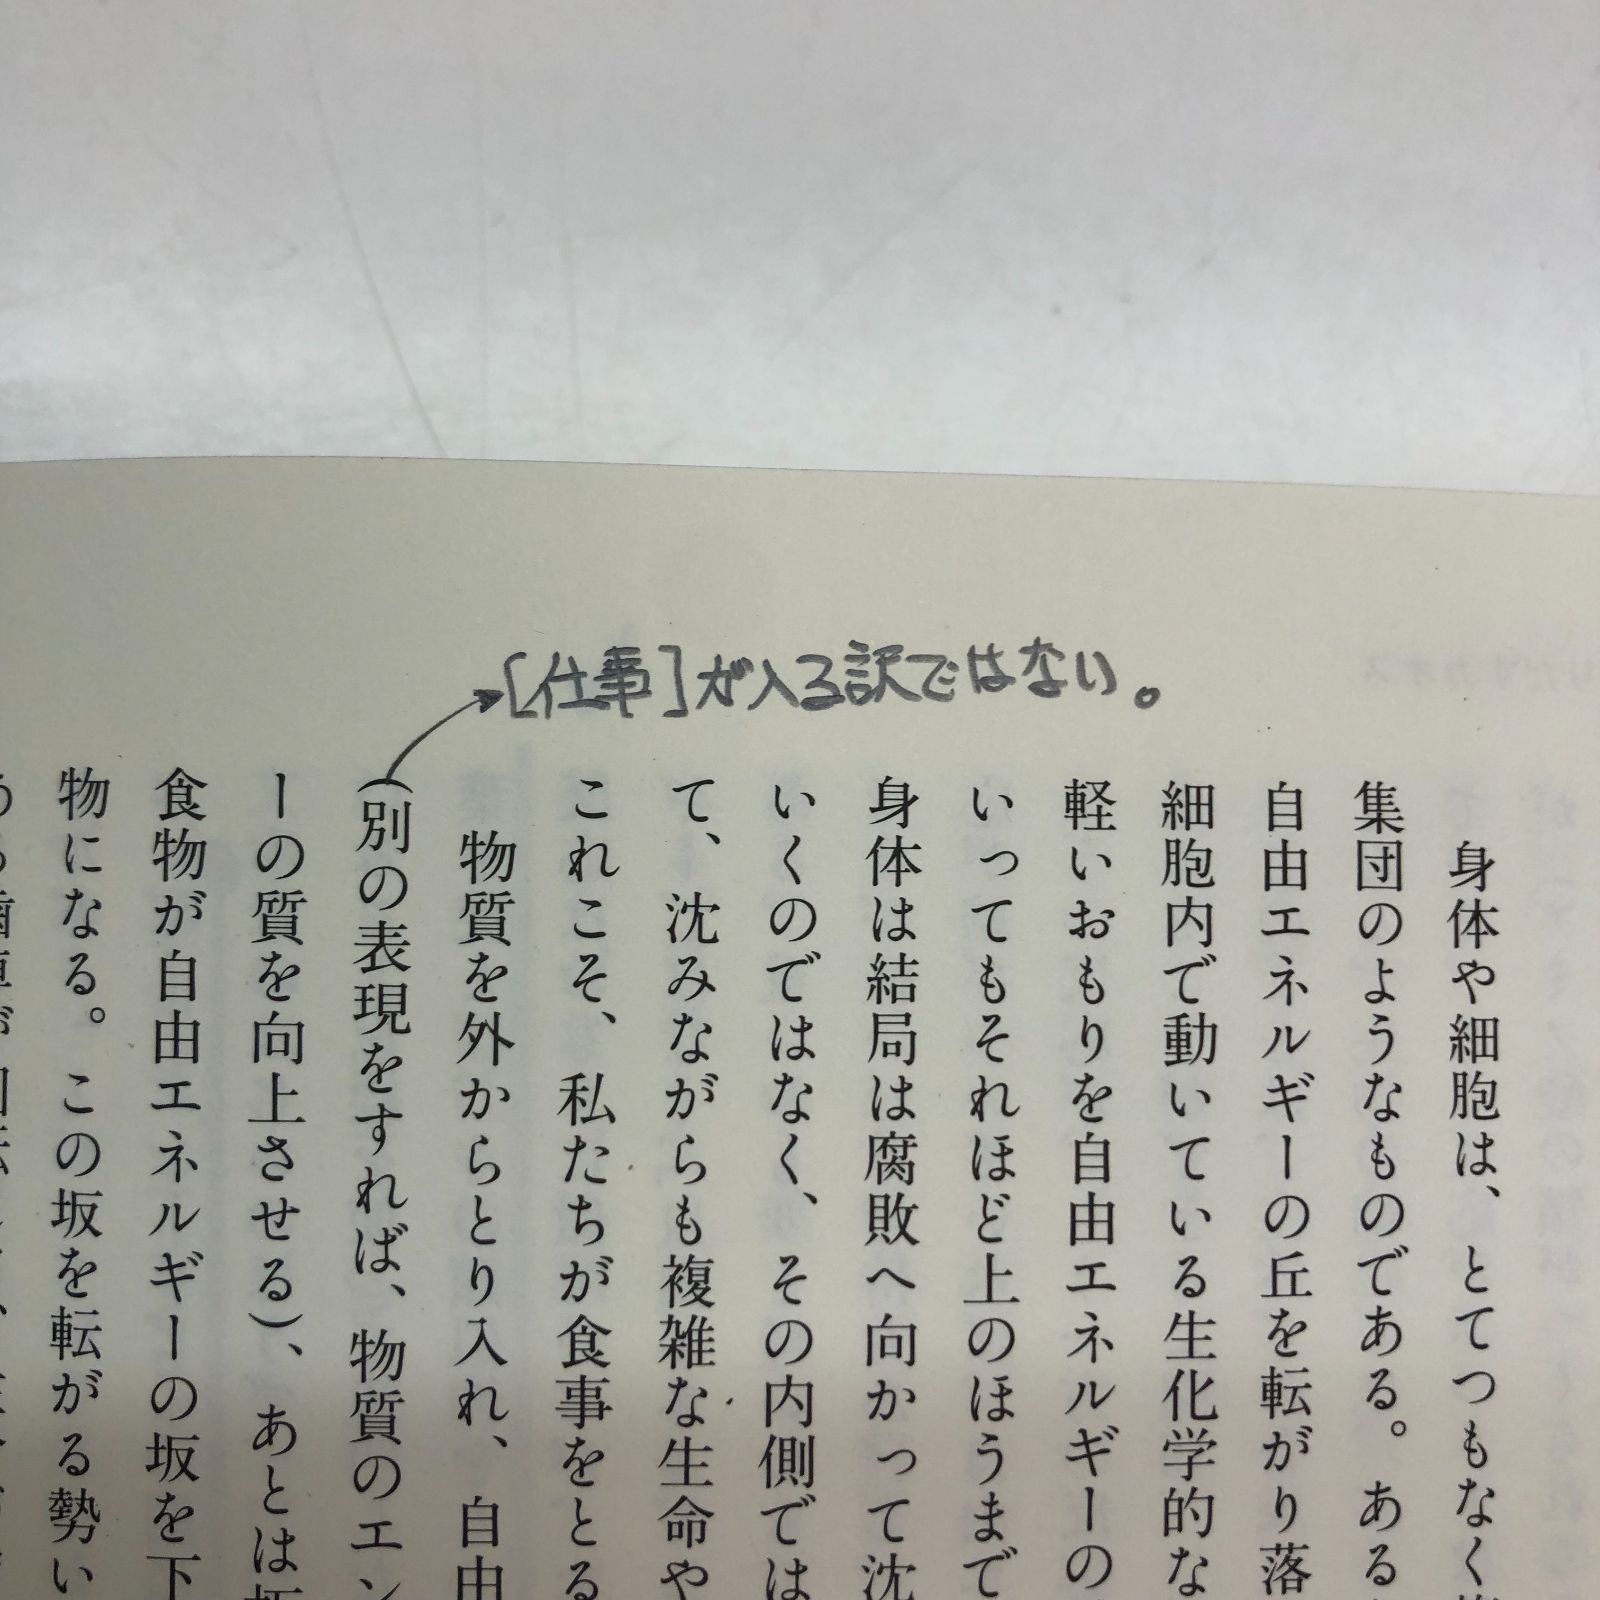 [仕事]が入る訳ではない。
身体や細胞は、とてつもなく
集団のようなものである。ある
自由エネルギーの丘を転がり落
細胞内で動いている生化学的な
軽いおもりを自由エネルギーの
いってもそれほど上のほうまで
身体は結局は腐敗へ向かって沈
いくのではなく、その内側では
て、沈みながらも複雑な生命や
これこそ、私たちが食事をとる
物質を外からとり入れ、自由
(別の表現をすれば、物質のエン
ーの質を向上させる)、あとは坂
食物が自由エネルギーの坂を下
物になる。この坂を転がる勢い